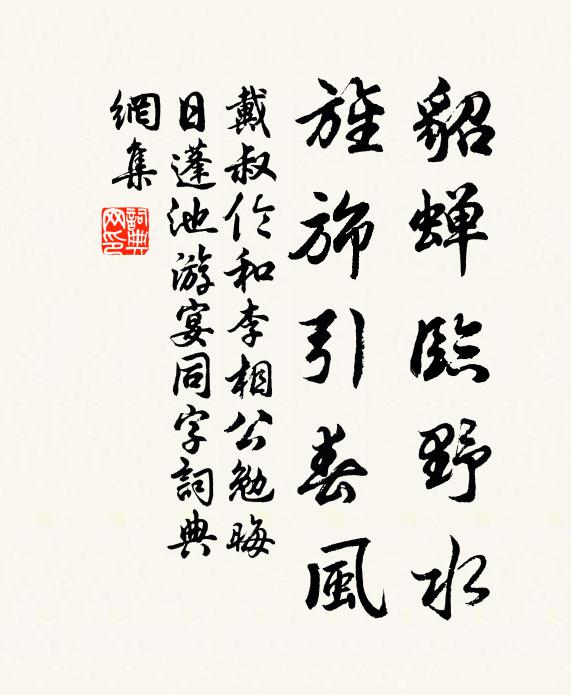 貂蟬臨野水
旌旆引春風
戴叔伦和李相公勉晦
日蓬池游宴同字詞典
網集
詞典网印